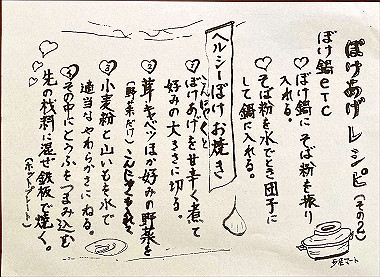 ぼけあげレシピ(その2)
ぼけ鍋etc
♡ぼけ鍋にそば粉を振り
入れる。
♡そば粉を水でとき団子に
して鍋に入れる。
ヘルシーぼけお焼き
①こんにゃくと
ぼけあげを甘辛く煮て
好みの大きさに切る。
②茸・キャベツほか好みの野菜を
(野菜だけ)
③小麦粉と山いもを水で
適当なやわらかさにねる。
④その中にとうふをつまみ込む
先の材料に混ぜ鉄板で焼く。
(ホットプレート)